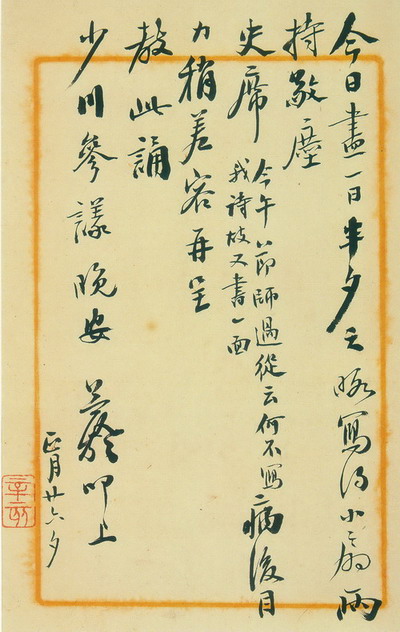 今日盡一日半夕之晷寫得小扇兩
持敬塵
史席 今午節師過從云何不寫
我詩故又書一面
病後目
力稍差容再呈
教此誦
少川參議晚安 叩上
正月廿六夕